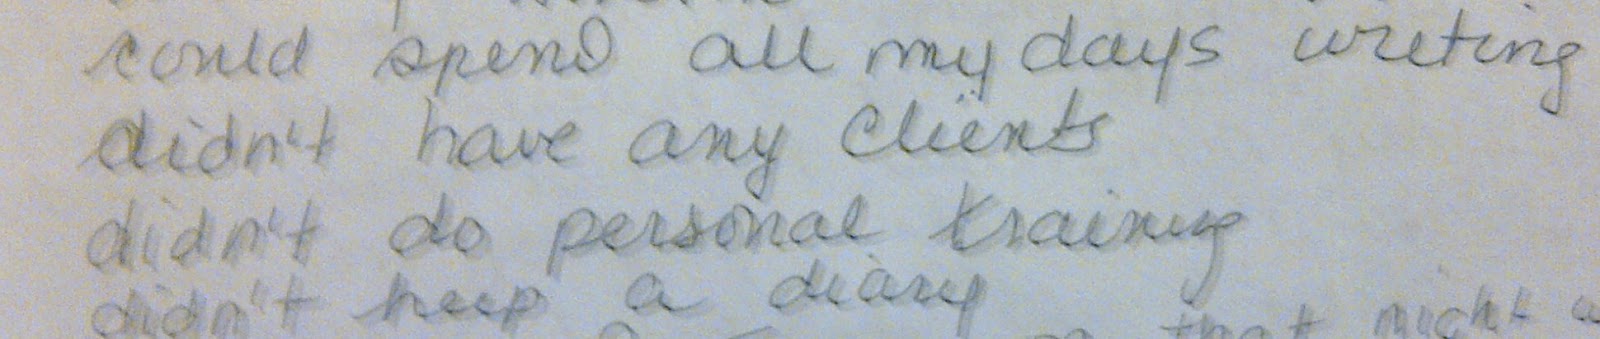 could spend all my days writing
didn't have any clients
didn't do personal training
didn't keep a diary
that might